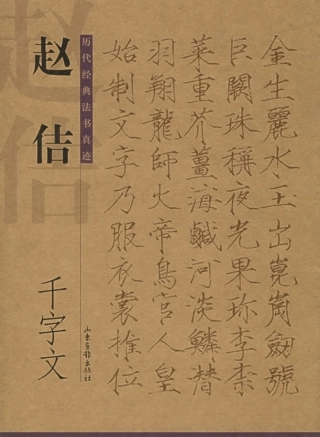 赵佶
历代经典法书真迹
千字文
山东画报出版社
金生麗水玉出崑崗劒號
巨闕珠稱夜光果珎李柰
菜重芥薑海鹹河淡鱗潜
羽翔龍師火帝鳥官人皇
始制文字乃服衣裳推位